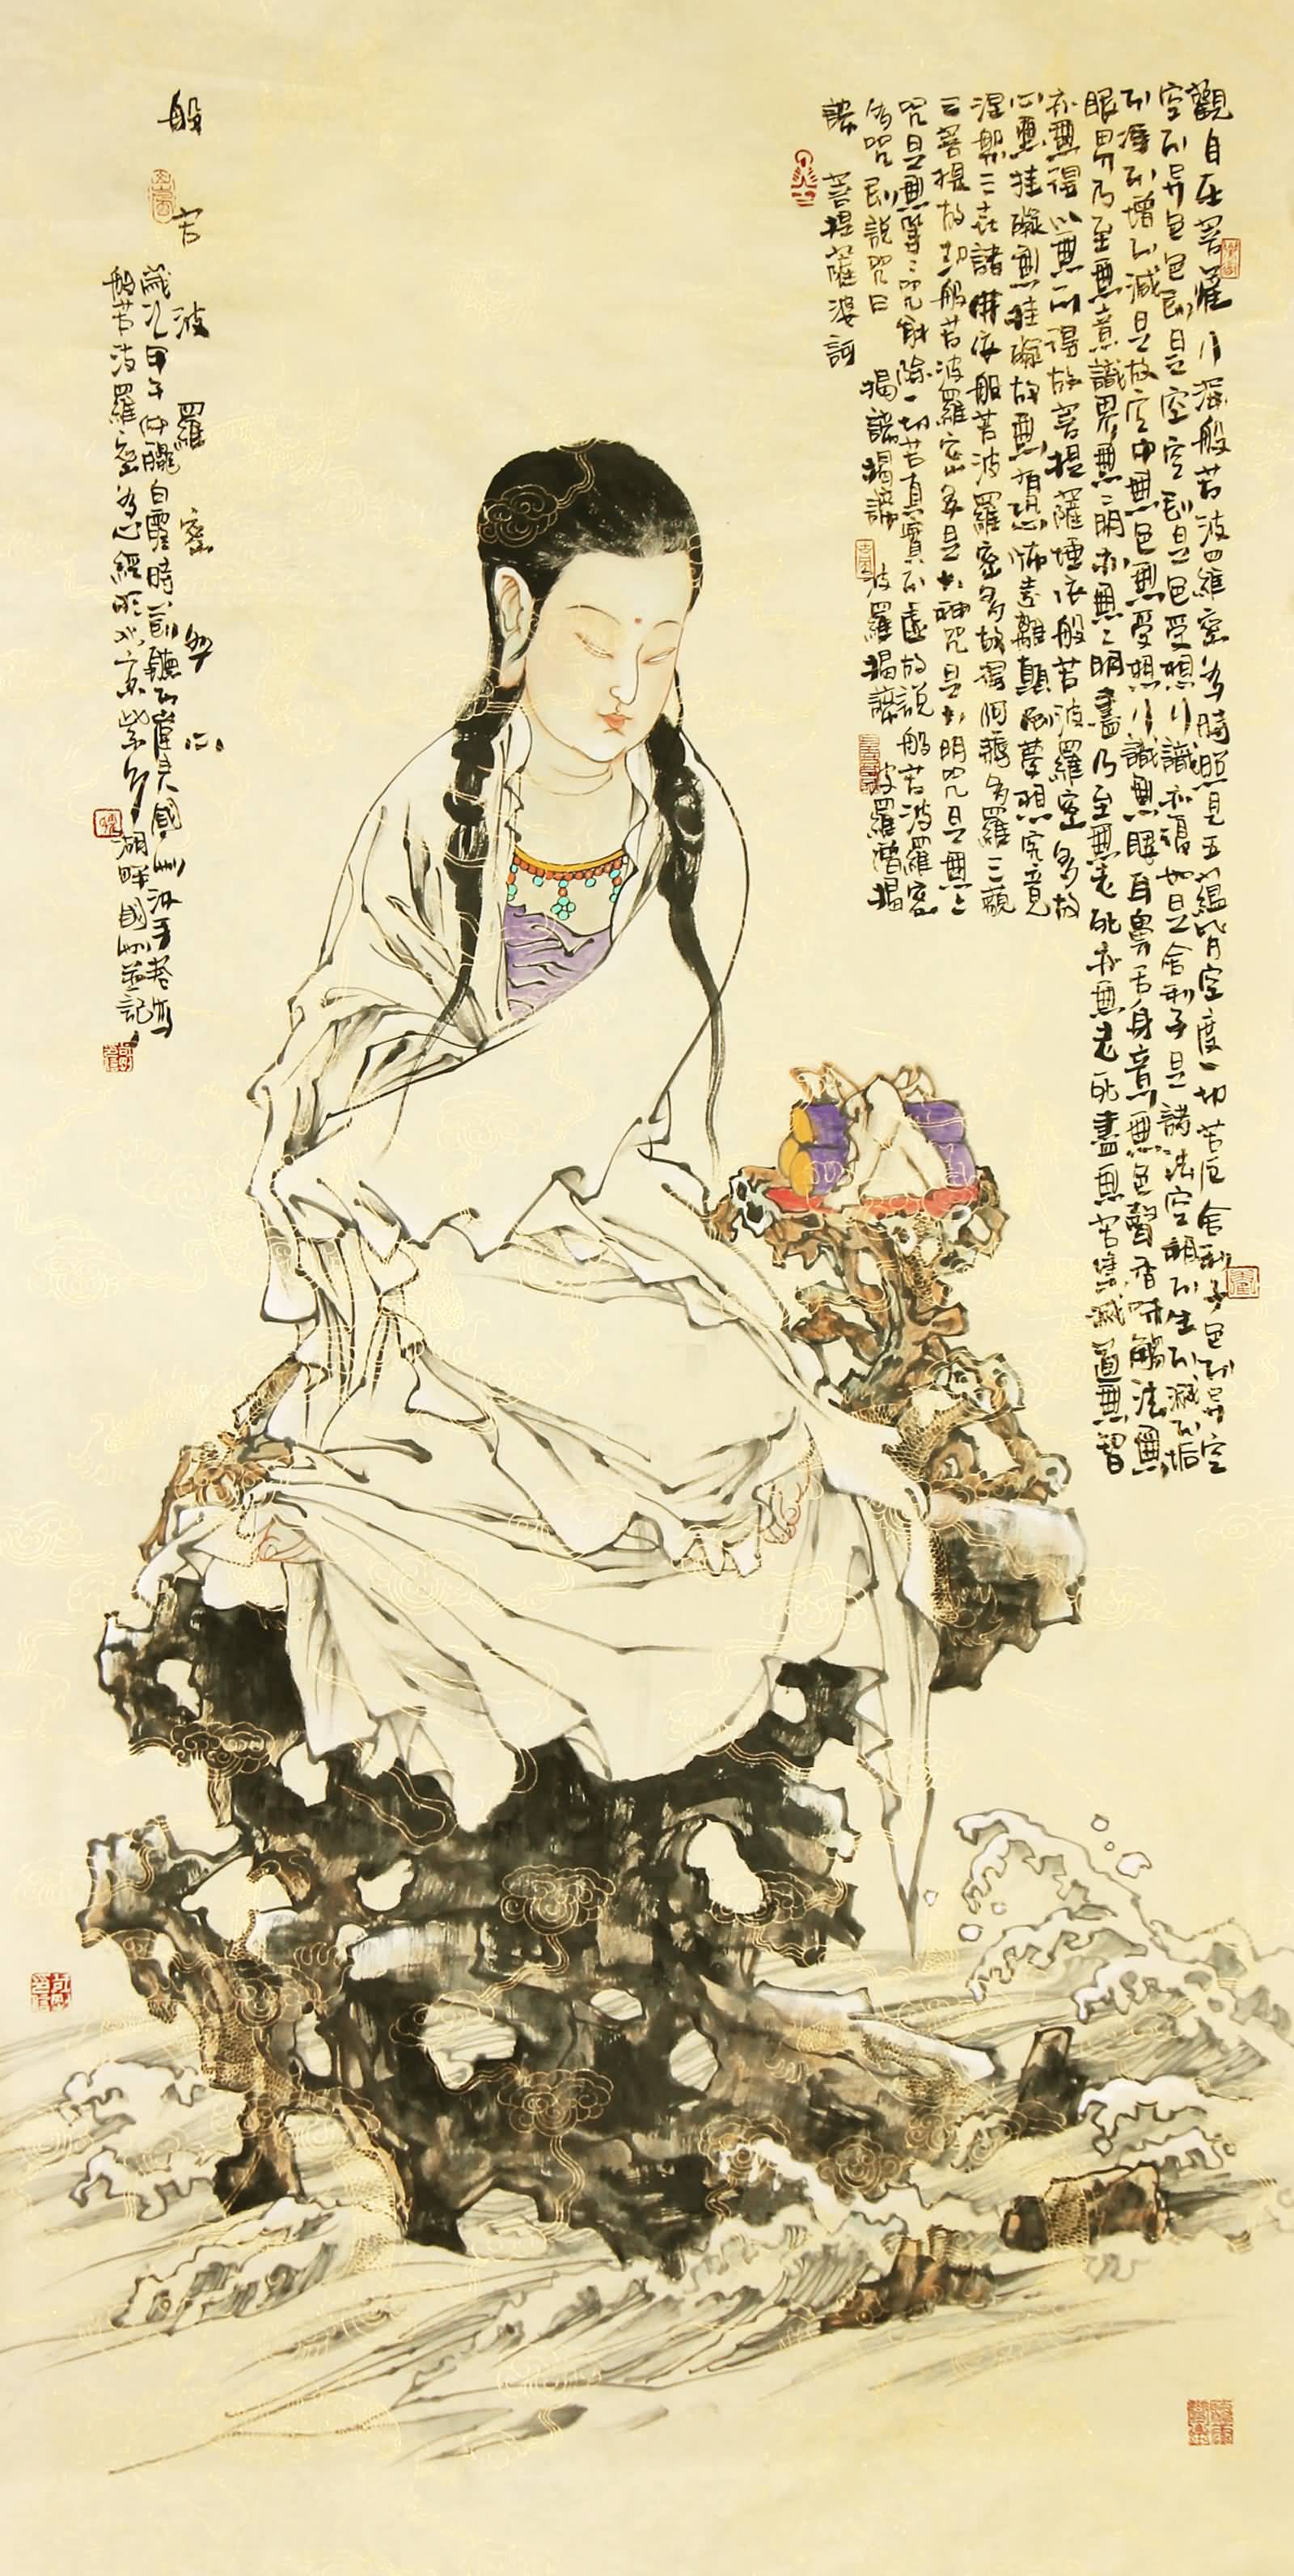 觀自在菩薩行深般若波羅密多時照見五蘊皆空度一切苦厄舍利子色不异空
空不异色色即是空空即是色受想行識亦復如是舍利子是諸法空相不生不滅不垢
不淨不增不減是故空中無色無受想行識無眼耳鼻舌身意無色聲香味觸法無
眼界乃至無意識界無無明亦無無明盡乃至無老死亦無老死盡無苦集滅道無智
亦無得以無所得故菩提薩埵依般若波羅密多故
心無挂礙無挂礙故無有恐怖遠離顛倒夢想究竟
涅槃三世諸佛依般若波羅密多故得阿耨多羅三藐
三菩提故知般若波羅密多是大神咒是大明咒是無上
咒是無等等咒能除一切苦真實不虛故說般若波羅密
多咒即說咒曰 揭諦揭諦 波羅揭諦 波羅僧揭
諦 菩提薩婆訶
般若波羅密多心
歲次甲午仲 白露時節聽 國洲沐手恭寫
般若波羅密多心經於北京紫 湖畔國洲並記